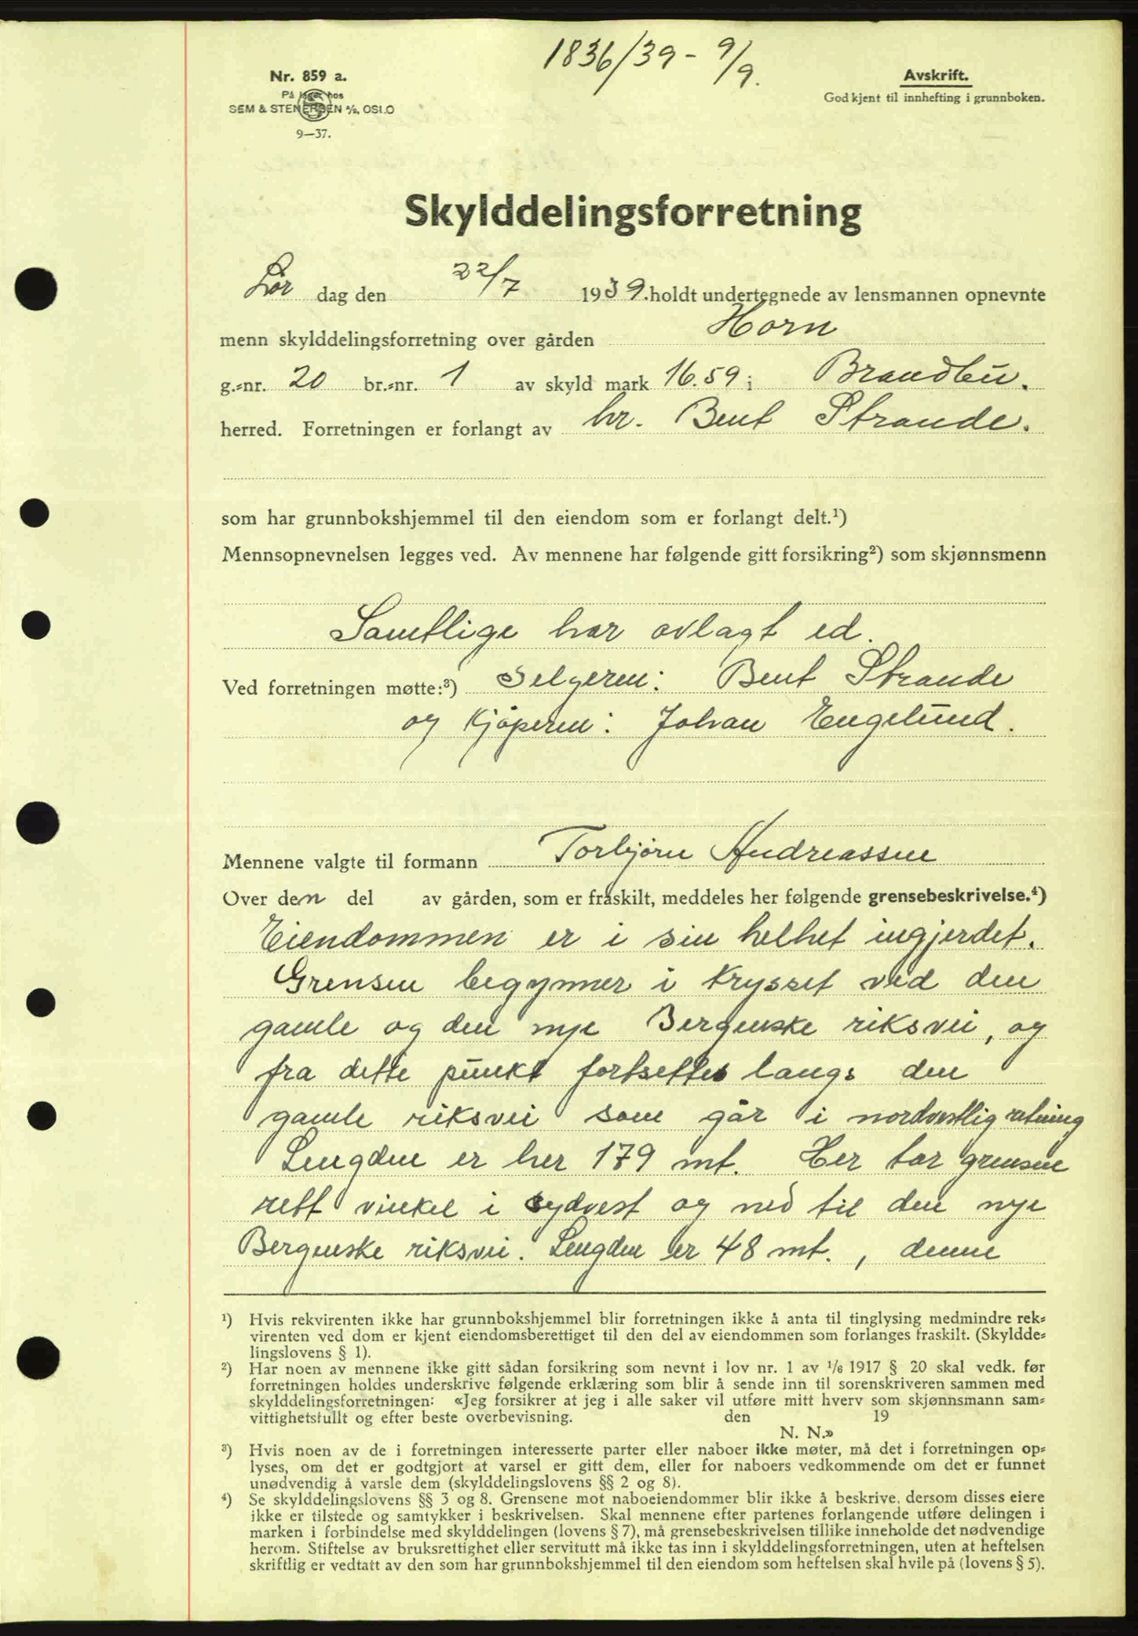 1836/39 - 9/9.
Nr. 859 a.
På lager hos
SEM & STENERSEN A/S, OSLO
9—37.
Avskrift.
Godkjent til innhefting i grunnboken.
Skylddelingsforretning
Lør dag den 22/7 1939. holdt undertegnede av lensmannen opnevnte
menn skylddelingsforretning over gården Horn
g.-nr. 20 br.-nr. 1 av skyld mark 16.59 i Brandbu.
herred. Forretningen er forlangt av hr. Bent Strande.
som har grunnbokshjemmel til den eiendom som er forlangt delt.¹)
Mennsopnevnelsen legges ved. Av mennene har følgende gitt forsikring²) som skjønnsmenn
Samtlige har avlagt ed.
Ved forretningen møtte:³) Selgeren: Bent Strande
og Kjøperen: Johan Engelund.
Mennene valgte til formann Torbjørn Andreassen
Over den del av gården, som er fraskilt, meddeles her følgende grensebeskrivelse.⁴)
Eiendommen er i sin helhet ingjerdet.
Grensen begynner i krysset ved den
gamle og den nye Bergenske riksvei, og
fra dette punkt fortsettes langs den
gamle riksvei som går i nordvestlig retning
Lengden er her 179 mt. Her tar grensen
rett vinkel i sydvest og ned til den nye
Bergenske riksvei. Lengden er 48 mt., denne
¹) Hvis rekvirenten ikke har grunnbokshjemmel blir forretningen ikke å anta til tinglysing medmindre rek-
virenten ved dom er kjent eiendomsberettiget til den del av eiendommen som forlanges fraskilt. (Skyldde-
lingslovens § 1).
²) Har noen av mennene ikke gitt sådan forsikring som nevnt i lov nr. 1 av 1/6 1917 § 20 skal vedk. før
forretningen holdes underskrive følgende erklæring som blir å sende inn til sorenskriveren sammen med
skylddelingsforretningen: «Jeg forsikrer at jeg i alle saker vil utføre mitt hverv som skjønnsmann sam-
vittighetsfullt og efter beste overbevisning. den 19
N. N.»
³) Hvis noen av de i forretningen interesserte parter eller naboer ikke møter, må det i forretningen op-
lyses, om det er godtgjort at varsel er gitt dem, eller for naboers vedkommende om det er funnet
unødvendig å varsle dem (skylddelingslovens §§ 2 og 8).
⁴) Se skylddelingslovens §§ 3 og 8. Grensene mot naboeiendommer blir ikke å beskrive, dersom disses eiere
ikke er tilstede og samtykker i beskrivelsen. Skal mennene efter partenes forlangende utføre delingen i
marken i forbindelse med skylddelingen (lovens § 7), må grensebeskrivelsen tillike inneholde det nødvendige
herom. Stiftelse av bruksrettighet eller servitutt må ikke tas inn i skylddelingsforretningen, uten at heftelsen
skriftlig er vedtatt av den som har grunnbokshjemmel til den eiendom som heftelsen skal hvile på (lovens § 5).